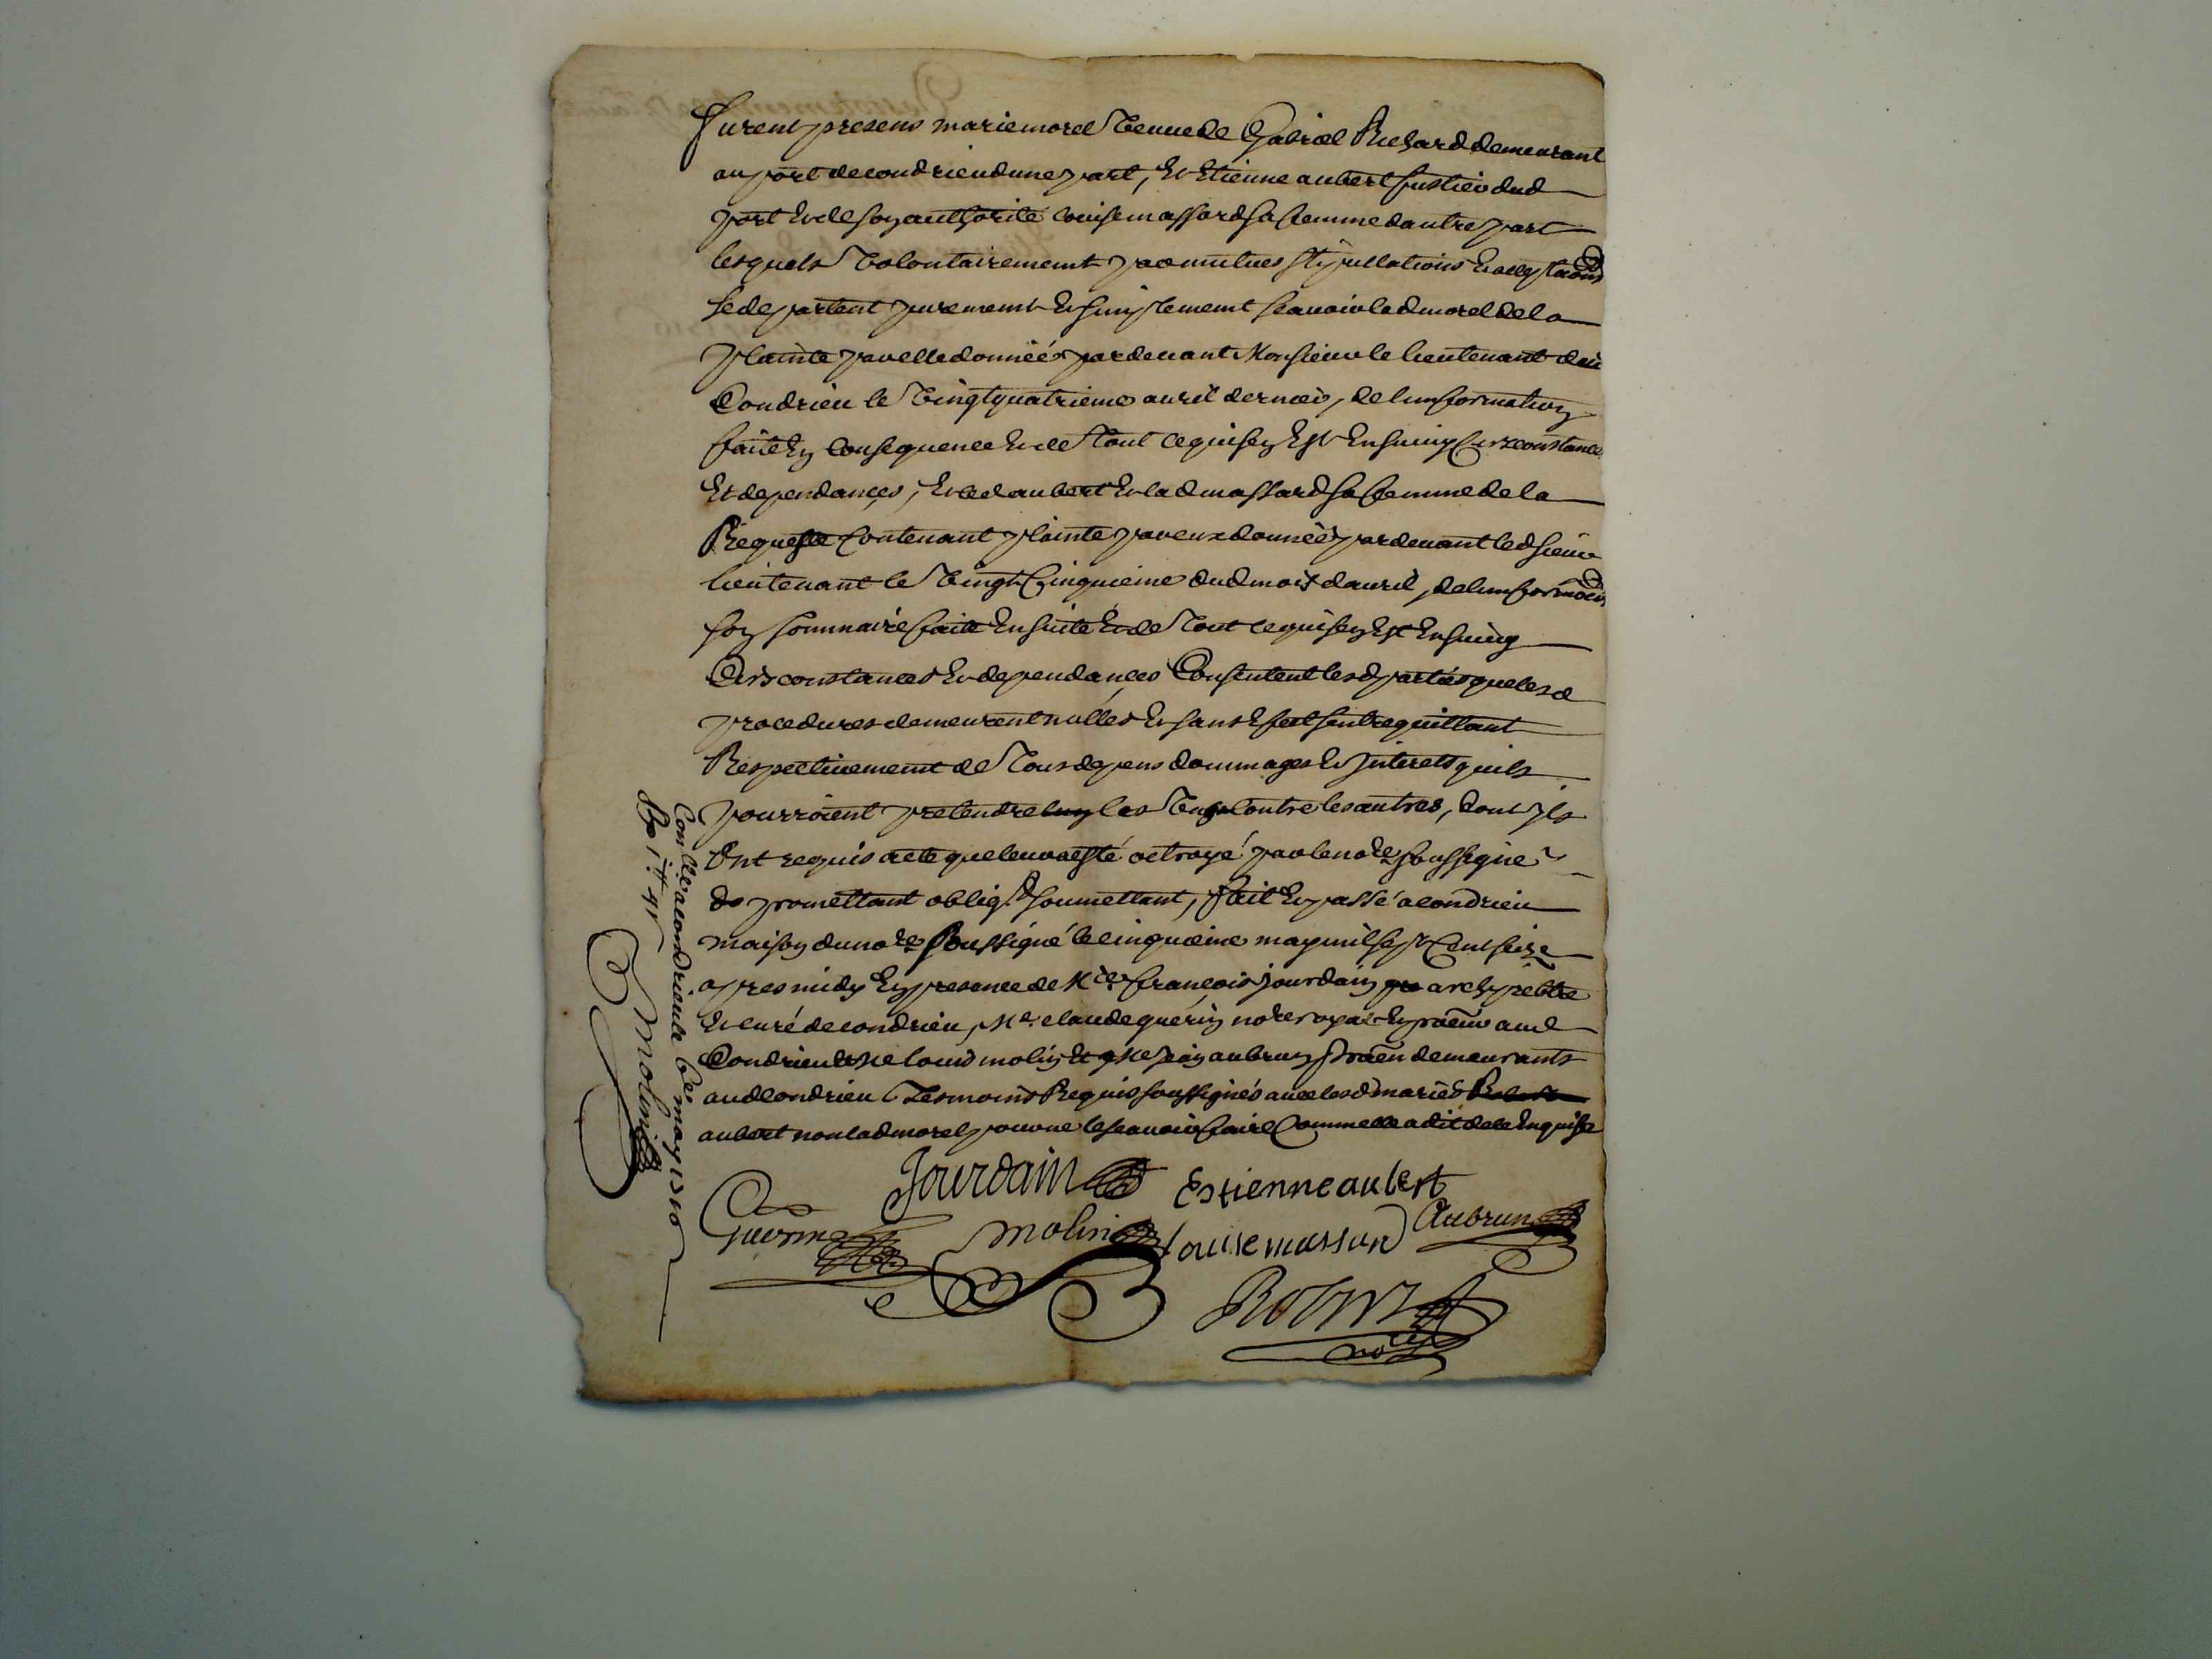 Furent presens marie morel veuve de Gabriel Richard demeurant
au port de condrieu dune part, Et Etienne aubert fustier dud
port Et de son authorité louise massard sa femme dautre part
lesquels volontairement par mutues stipullations Et acceptaons
se departent purement Et simplement scauoir lad morel de la
plainte par elle donnéé pardeuant Monsieur le lieutenant de
Condrieu le vingtquatrieme auril dernier, de linformation
faite En Consequence Et de tout ce quisen Est Ensuiuy Circonstances
Et dependances, Et led aubert Et lad massard sa femme de la
Requeste Contenant plainte par eux donnéé pardeuant led sieur
lieutenant le vingt Cinquieme dud mois dauril, de linformaon
son sommaire faite Ensuite Et de tout ce quisen Est Ensuiuy
Circonstances Et dependances Consentent lesd parties que lesd
procedures demeurent nulles Et sans Efect sentrequittant
Respectiuement de tous depens dommages Et Interets quils
pourroient pretendre les vns Contre les autres, dont Ils
Ont requis acte que leur a esté octroyé par le nore soussigné
promettant obligt soumettant, fait Et passé a condrieu
maison du nore soussigné le cinquieme may mil sept Cent seize
apres midy En presence de Mre francois jourdain archiprebtre
Et curé de condrieu, Me claude guerin nore royal Et procur aud
Condrieu Me louis molin Et Me jean aubrun praen demeurants
aud Condrieu tesmoins Requis soussignés auec lesd mariés
aubert non lad morel pour ne le scauoir faire Comme elle a dit de ce Enquise
Jourdain Estienne aubert
Guerin molin louise massard Aubrun
Robin
nore
Conllé a condrieu le 6e may 1716
Molin